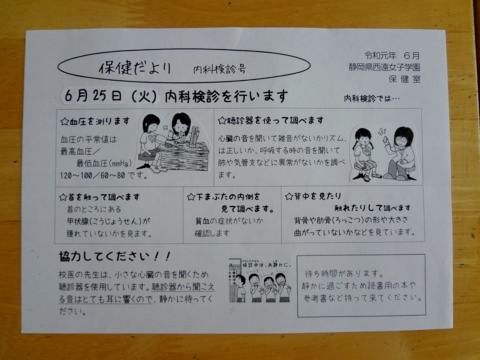 保健だより 内科検診号
令和元年 6月
静岡県西遠女子学園
保健室
6月25日(火)内科検診を行います
内科検診では…
☆血圧を測ります
血圧の平常値は
最高血圧/
最低血圧(mmHg)
120~100/60~80です。
☆聴診器を使って調べます
心臓の音を聞いて雑音がないかリズム、
は正しいか、呼吸する時の音を聞いて
肺や気管支などに異常がないかを調べ
ます。
☆首を触って調べます
首のところにある
甲状腺(こうじょうせん)が
腫れていないかを見ます。
☆下まぶたの内側を
見て調べます。
貧血の症状がないか
確認します
☆背中を見たり
触れたりして調べます
背骨や肋骨(ろっこつ)の形や大きさ
曲がっていないかなどを見ています。
協力してください!!
校医の先生は、小さな心臓の音を聞くため
聴診器を使用しています。聴診器から聞こえ
る音はとても耳に響くので、静かに待ってく
ださい。
検診中は、お静かに。
待ち時間があります。
静かに過ごすため読書用の本や
参考書など持って来てください。